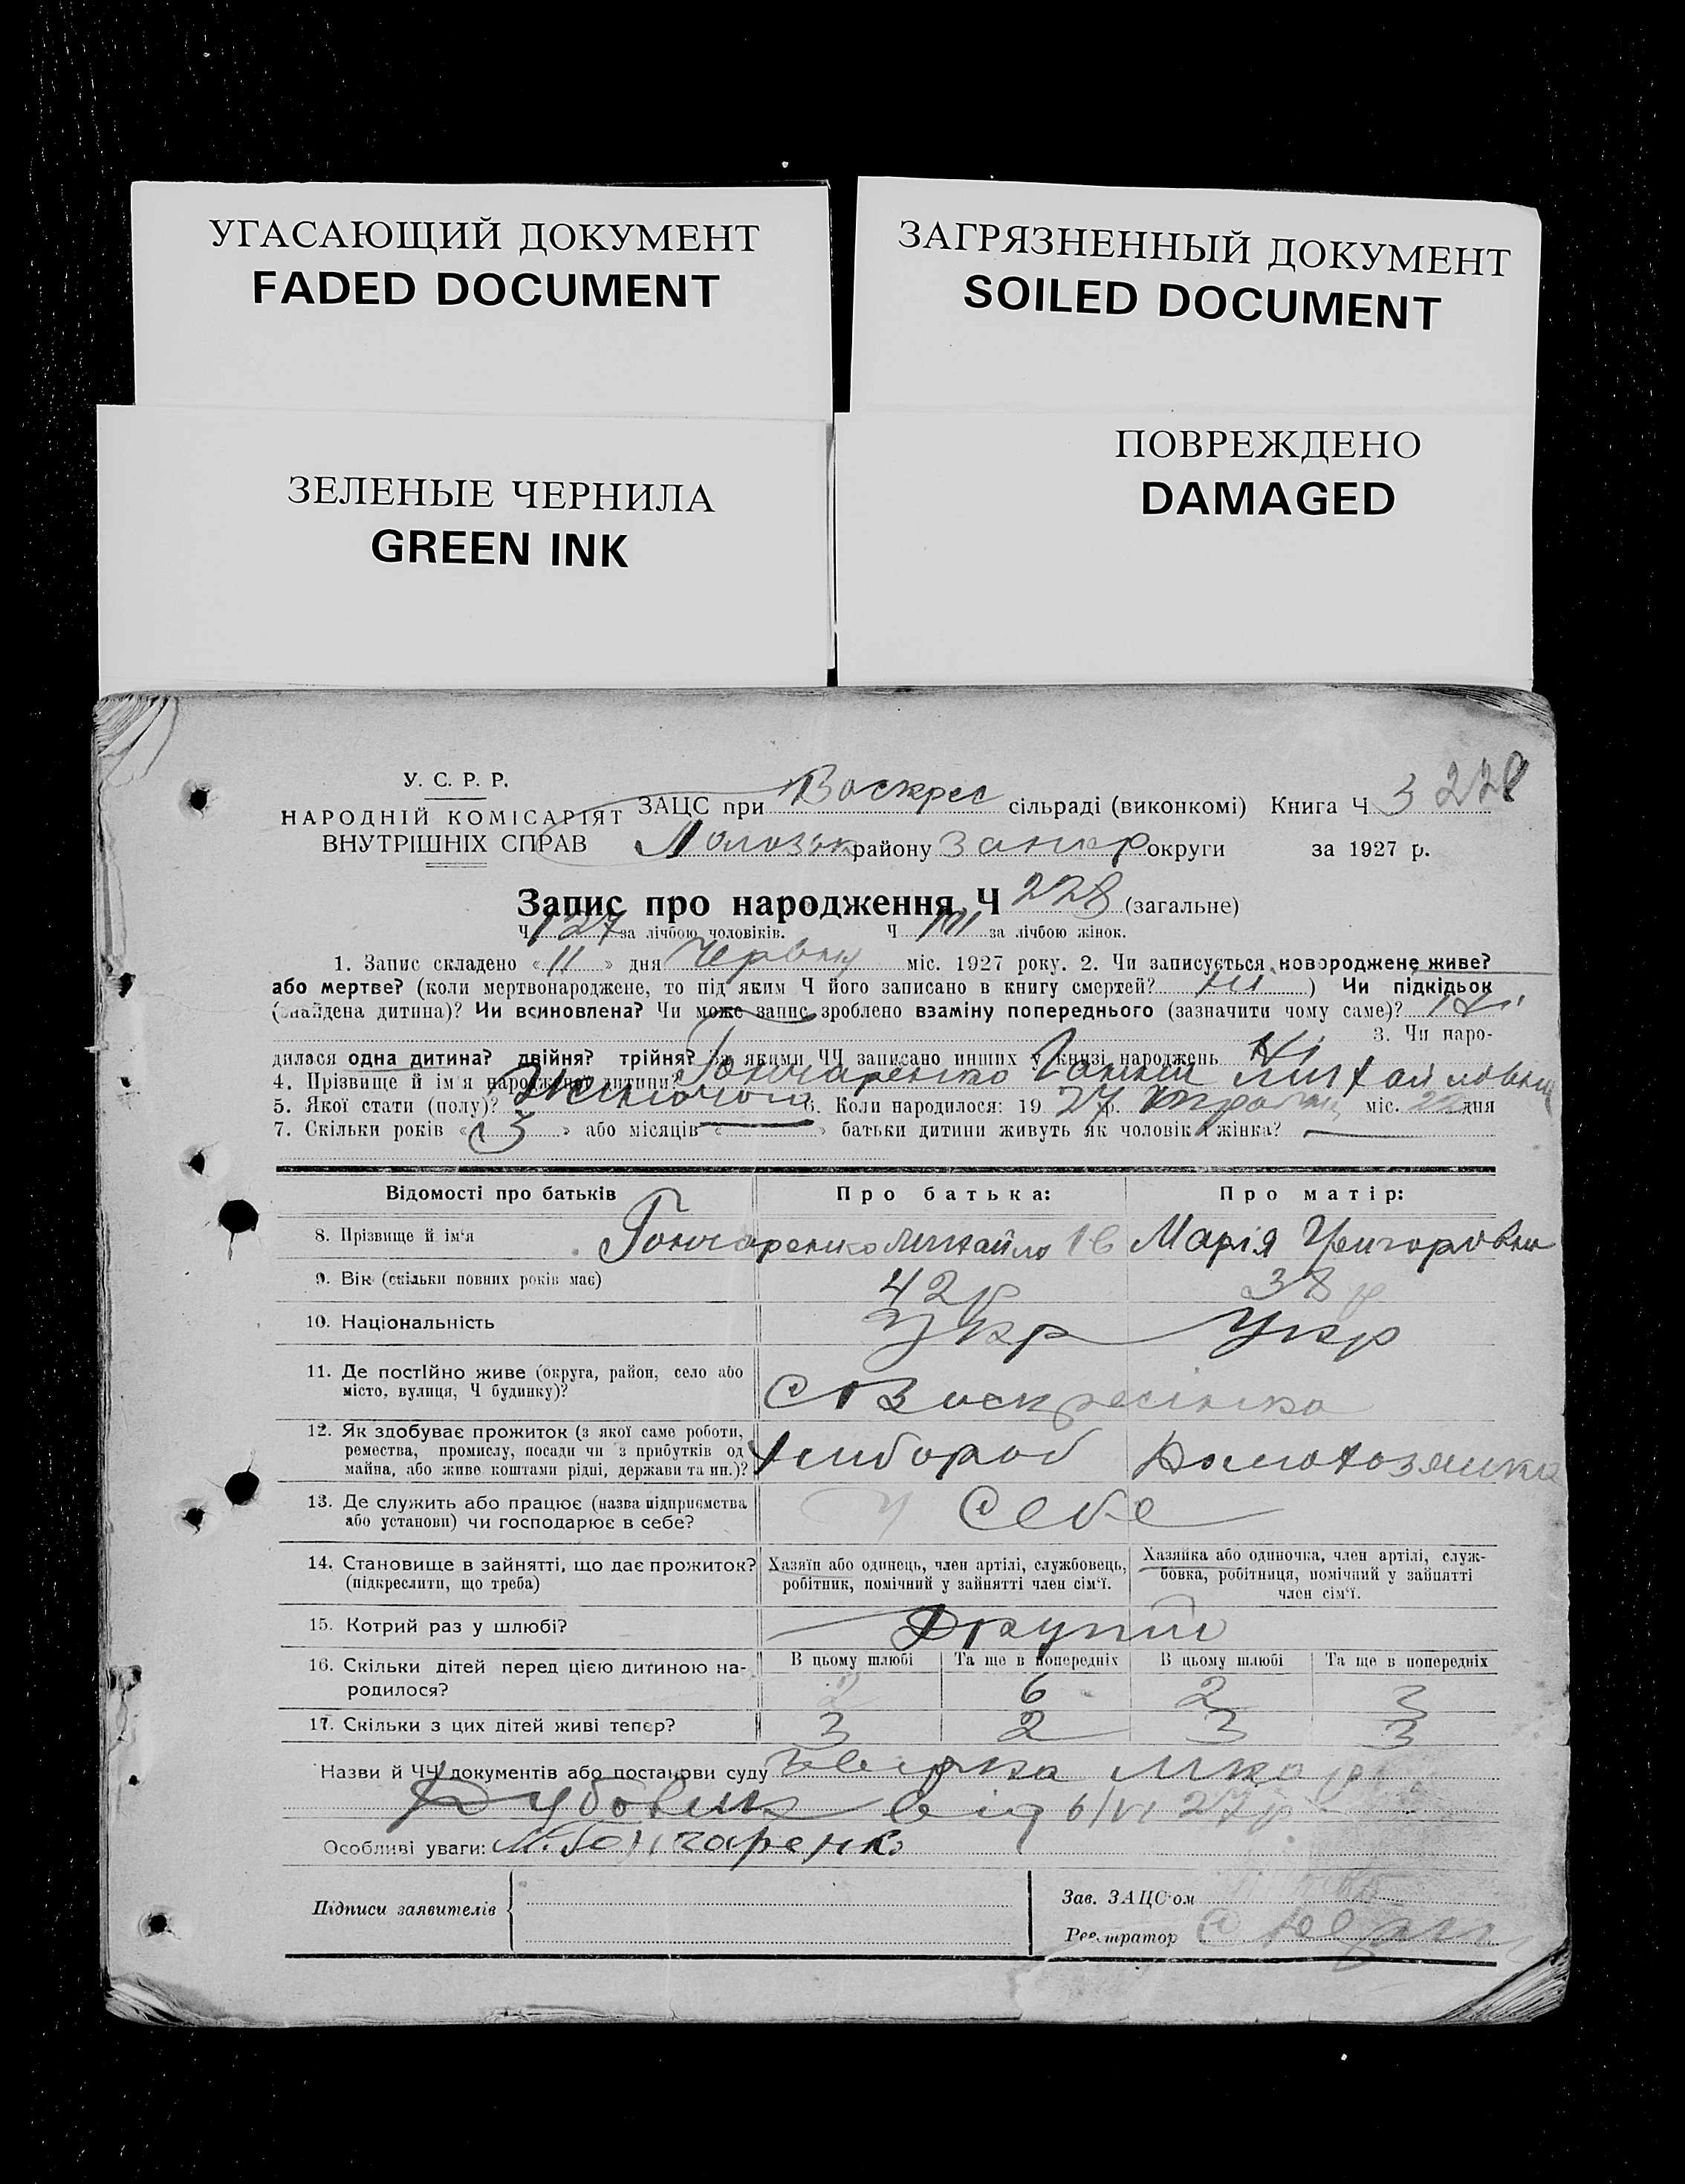 УГАСАЮЩИЙ ДОКУМЕНТ
FADED DOCUMENT
ЗАГРЯЗНЕННЫЙ ДОКУМЕНТ
SOILED DOCUMENT
ЗЕЛЕНЫЕ ЧЕРНИЛА
GREEN INK
ПОВРЕЖДЕНО
DAMAGED
У. С. Р. Р.
НАРОДНІЙ КОМІСАРІЯТ
ВНУТРІШНІХ СПРАВ
ЗАЦС при Воскрес сільраді (виконкомі) Книга Ч 3 228
району Запор округи за 1927 р.
Запис про народження Ч 228 (загальне)
Ч 127 за лічбою чоловіків. Ч за лічбою жінок.
1. Запис складено « 11 » дня Червня міс. 1927 року. 2. Чи записується новороджене живе?
або мертве? (коли мертвонароджене, то під яким Ч його записано в книгу смертей? ні ) Чи підкідьок
(знайдена дитина)? Чи всиновлена? Чи може запис зроблено взаміну попереднього (зазначити чому саме)? ні
3. Чи наро-
дилася одна дитина? двійня? трійня? За якими ЧЧ записано инших у книзі народжень Ні
4. Прізвище й ім'я народженої дитини? Гончаренко Ганна Михайловна
5. Якої стати (полу)? Жіночої 6. Коли народилося: 19 27 р. травня міс. 22 дня
7. Скільки років « 3 » або місяців « — » батьки дитини живуть як чоловік і жінка? —
Відомості про батьків
Про батька:
Про матір:
8. Прізвище й ім'я Гончаренко Михайло Ів Марія Григоровна
9. Вік (скільки повних років має) 42 р 38 р
10. Національність Укр Укр
11. Де постійно живе (округа, район, село або
місто, вулиця, Ч будинку)?
С Воскресінка
12. Як здобуває прожиток (з якої саме роботи,
ремества, промислу, посади чи з прибутків од
майна, або живе коштами рідні, держави та ин.)?
Хлібороб Домохозяйка
13. Де служить або працює (назва підприємства
або установи) чи господарює в себе?
У Себе
14. Становище в зайнятті, що дає прожиток?
(підкреслити, що треба)
Хазяїн або одинець, член артілі, службовець,
робітник, помічний у зайнятті член сім'ї.
Хазяйка або одиночка, член артілі, служ-
бовка, робітниця, помічний у зайнятті
член сім'ї.
15. Котрий раз у шлюбі? Другий
16. Скільки дітей перед цією дитиною на-
родилося?
В цьому шлюбі Та ще в попередніх В цьому шлюбі Та ще в попередніх
2 6 2 3
17. Скільки з цих дітей живі тепер? 3 2 3 3
Назви й ЧЧ документів або постанови суду
від 6/VI 27 р
Особливі уваги: М. Гончаренко
Підписи заявителів
Зав. ЗАЦС'ом
Реєстратор